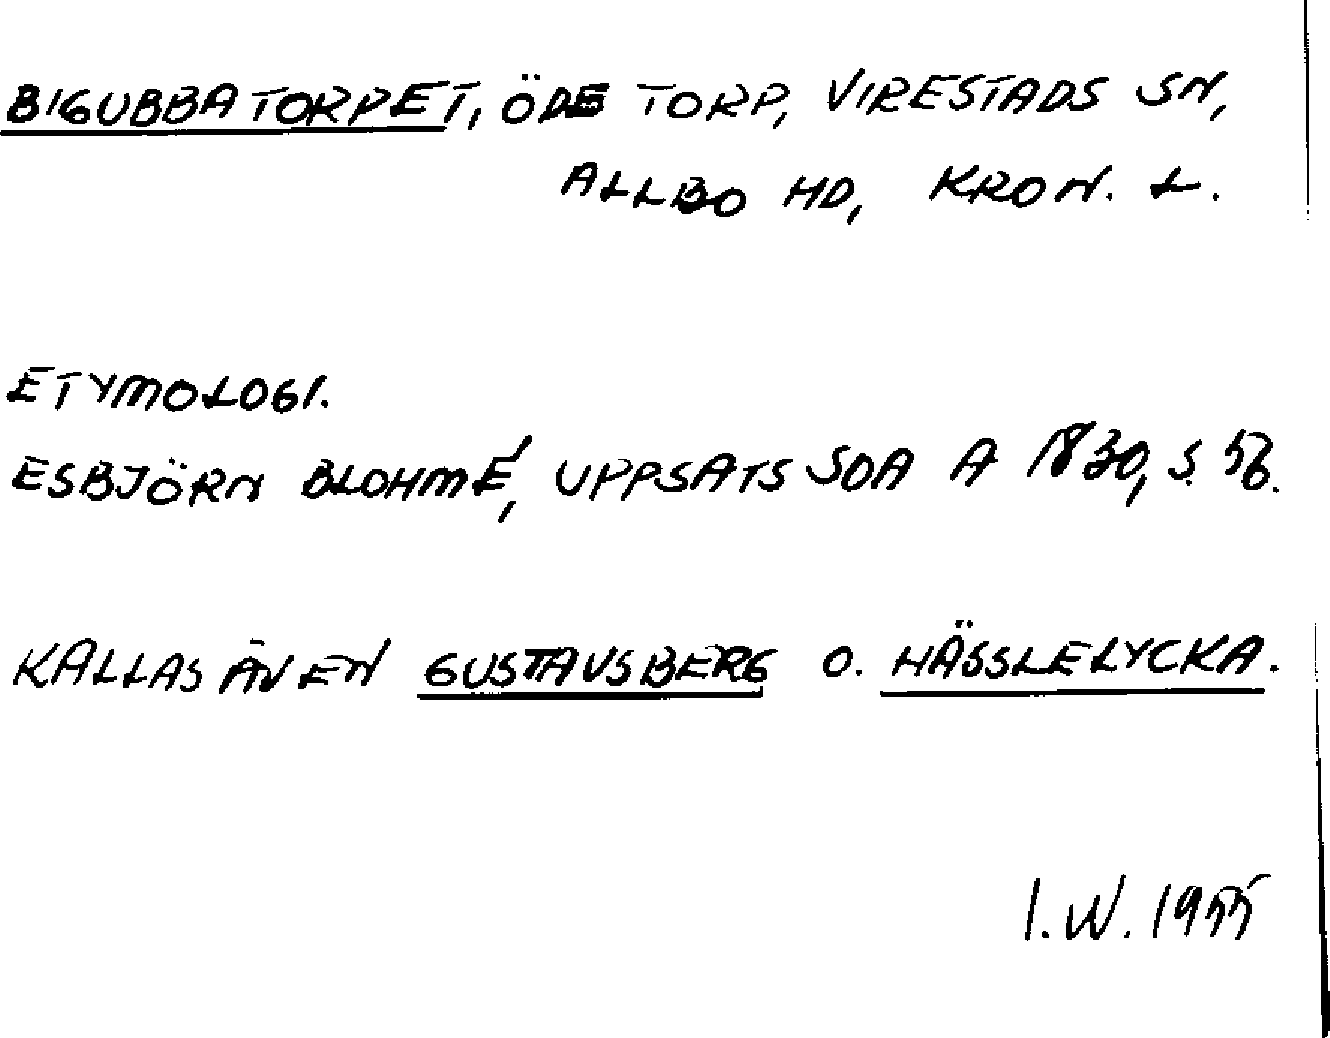 BIGUBBATORPET, ÖDE TORP, VIRESTADS SN,
ALLBO HD, KRON. L.
ETYMOLOGI.
ESBJÖRN BLOHMÉ, UPPSATS SOA A 1830, S. 56.
KALLAS ÄVEN GUSTAVSBERG O. HÄSSLELYCKA.
I.W. 1955